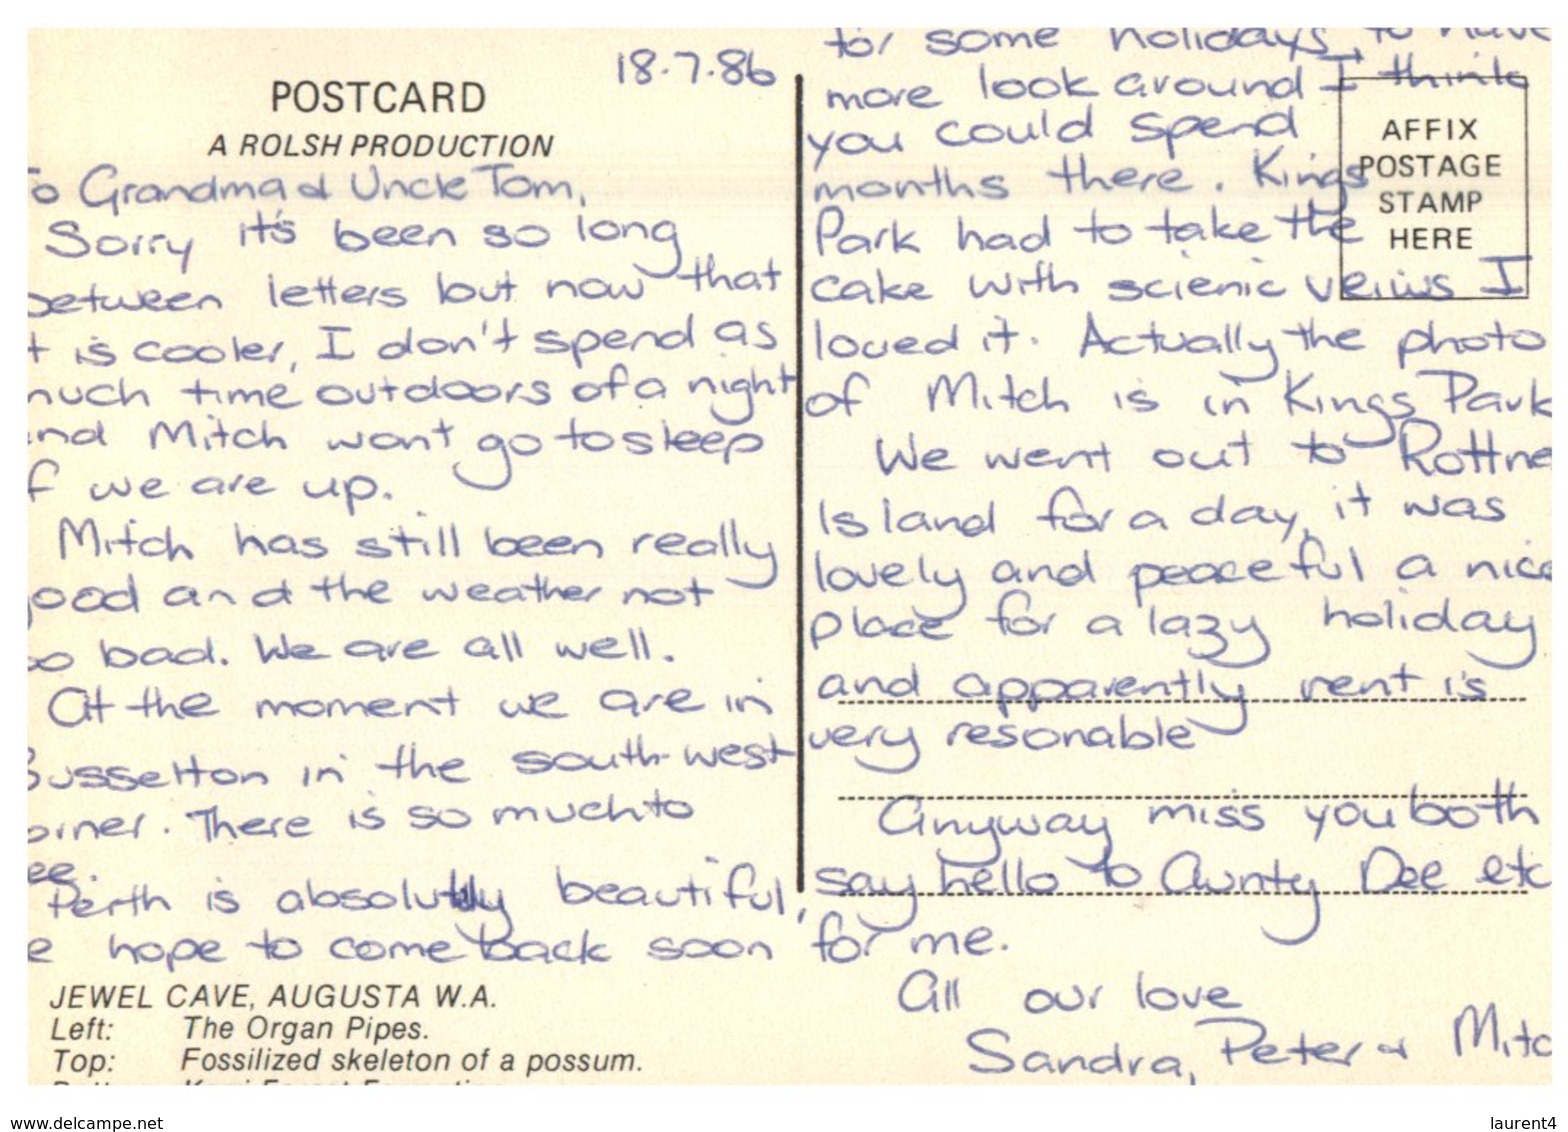 18.7.86
POSTCARD
A ROLSH PRODUCTION
To Grandma & Uncle Tom,
Sorry it's been so long
between letters but now that
it is cooler, I don't spend as
much time outdoors of a night
and Mitch wont go to sleep
if we are up.
Mitch has still been really
good and the weather not
so bad. We are all well.
At the moment we are in
Busselton in the south-west
corner. There is so much to
see.
Perth is absolutly beautiful,
we hope to come back soon
JEWEL CAVE, AUGUSTA W.A.
Left: The Organ Pipes.
Top: Fossilized skeleton of a possum.
for some holidays, to have
more look around I think
you could spend
months there. Kings
Park had to take the
cake with scienic veiws I
loved it. Actually the photo
of Mitch is in Kings Park
We went out to Rottne
Island for a day, it was
lovely and peaceful a nice
place for a lazy holiday
and apparently rent is
very resonable
Anyway miss you both
say hello to Aunty Dee etc
for me.
All our love
Sandra, Peter & Mitc
AFFIX
POSTAGE
STAMP
HERE
www.delcampe.net
laurent4